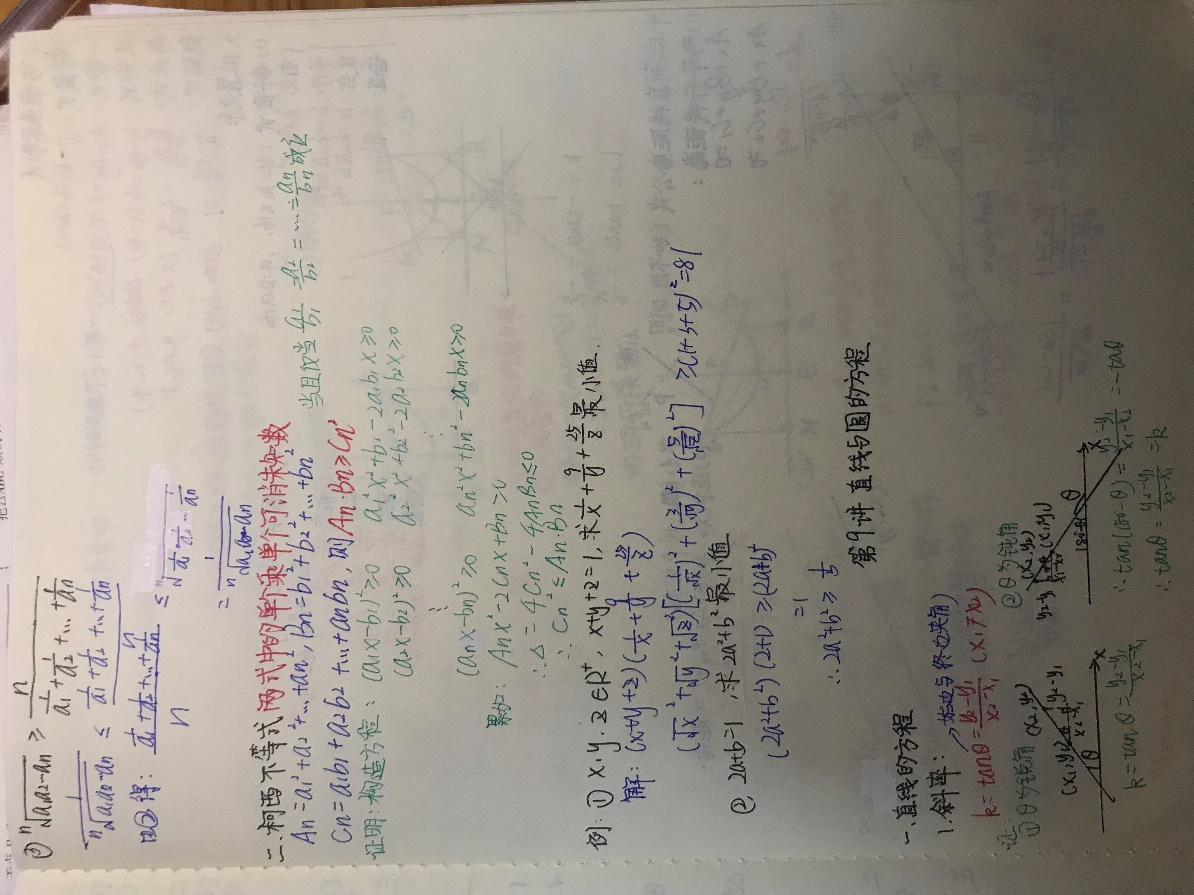 ② ⁿ√(a₁a₂…aₙ) ≥ n/(1/a₁+1/a₂+…+1/aₙ)
1/ⁿ√(a₁a₂…aₙ) ≤ (1/a₁+1/a₂+…+1/aₙ)/n
由②得: n
(1/a₁+1/a₂+…+1/aₙ)/n ≤ ⁿ√(1/a₁·1/a₂…1/aₙ)
= 1/ⁿ√(a₁a₂…aₙ)
二.柯西不等式 两式中的单个乘单个可消未知数
Aₙ=a₁²+a₂²+…+aₙ², Bₙ=b₁²+b₂²+…+bₙ²
当且仅当 a₁/b₁=a₂/b₂=…=aₙ/bₙ成立
Cₙ=a₁b₁+a₂b₂+…+aₙbₙ, 则Aₙ·Bₙ≥Cₙ²
证明:构造方程: (a₁x-b₁)²≥0 a₁²x²+b₁²-2a₁b₁x≥0
(a₂x-b₂)²≥0 a₂²x²+b₂²-2a₂b₂x≥0
⋮ ⋮
(aₙx-bₙ)²≥0 aₙ²x²+bₙ²-2aₙbₙx≥0
累加: Aₙx²-2Cₙx+Bₙ≥0
∴△=4Cₙ²-4AₙBₙ≤0
∴ Cₙ²≤Aₙ·Bₙ
例:① x,y,z∈R⁺, x+y+z=1,求1/x+9/y+25/z最小值.
解: (x+y+z)(1/x+9/y+25/z)
(√x²+√y²+√z²)[(1/√x)²+(3/√y)²+(5/√z)²] ≥(1+3+5)²=81
② 2a+b=1,求2a²+b²最小值
(2a²+b²)(2+1)≥(2a+b)²
=1
∴2a²+b²≥1/3
第9讲 直线与圆的方程
一.直线的方程
1.斜率: →始边与终边夹角
k=tanθ=(y₂-y₁)/(x₂-x₁) (x₁≠x₂)
证:
①θ为锐角 (x₂,y₂)
(x₁,y₁) y₂-y₁
x₂-x₁
θ x
k=tanθ=(y₂-y₁)/(x₂-x₁)
②θ为钝角
(x₂,y₂)
y₂-y₁ (x₁,y₁)
180°-θ θ x
∴tan(180°-θ)=(y₂-y₁)/(x₁-x₂)=-tanθ
∴tanθ=(y₂-y₁)/(x₂-x₁)=k